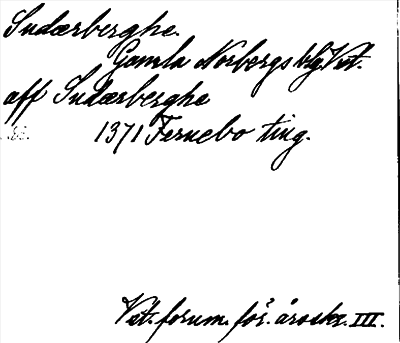 Sudærberghe.
Gamla Norbergs blg Vst.
aff Sudærberghe
1371 Fernebo ting.
Vst. fornm. för. årsskr. III.